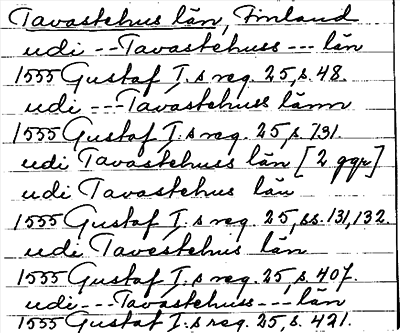 Tavastehus län, Finland
udi -- Tavastehuss --- län
1555 Gustaf I.s reg. 25, s. 48.
udi --- Tavastehuss länn
1555 Gustaf I.s reg. 25, s. 131.
udi Tavastehuss län [2 ggr]
udi Tavastehus län
1555 Gustaf I.s reg. 25, ss. 131, 132.
udi Tavestehus län
1555 Gustaf I.s reg. 25, s. 407.
udi --- Tavastehus --- län
1555 Gustaf I.s reg. 25, s. 421.